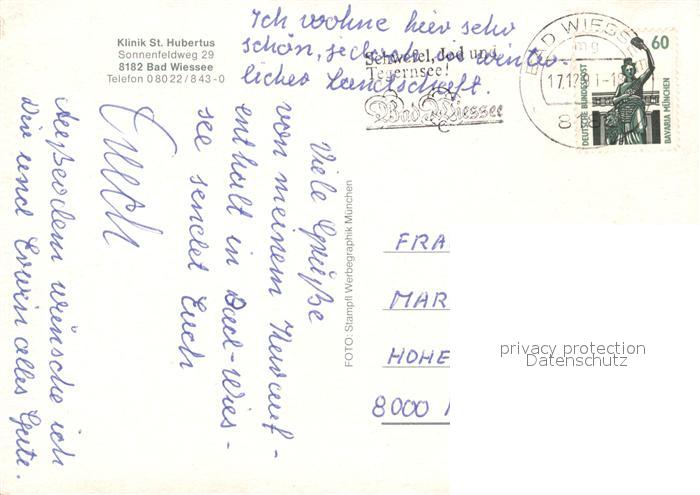 Klinik St. Hubertus
Sonnenfeldweg 29
8182 Bad Wiessee
Telefon 08022/843-0
Ich wohne hier sehr
schön, jedoch in winter-
licher Landschaft.
Schwefel, Jod und
Tegernsee!
Bad Wiessee
BAD WIESSE
mg
17.12
1-18
8182
60
DEUTSCHE BUNDESPOST
BAVARIA MÜNCHEN
Viele Grüße
von meinem Kurauf-
enthalt in Bad-Wies-
see sendet Euch
Außerdem wünsche ich
Dir und Erwin alles Gute.
FOTO: Stampfl Werbegraphik München
FRA
MAR
HOHE
8000
privacy protection
Datenschutz